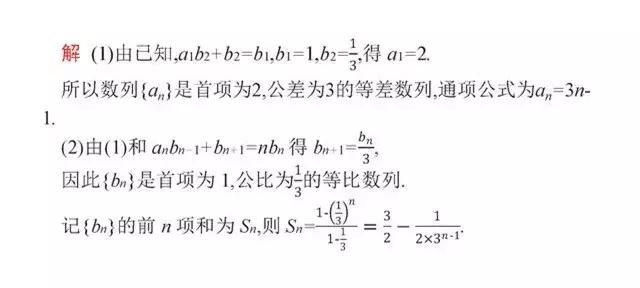 解 (1)由已知,a₁b₂+b₂=b₁,b₁=1,b₂=1/3,得 a₁=2.
所以数列{aₙ}是首项为2,公差为3的等差数列,通项公式为aₙ=3n-
1.
(2)由(1)和 aₙbₙ₋₁+bₙ₊₁=nbₙ 得 bₙ₊₁=bₙ/3,
因此{bₙ}是首项为 1,公比为1/3的等比数列.
记{bₙ}的前 n 项和为 Sₙ,则 Sₙ=(1-(1/3)ⁿ)/(1-1/3)=3/2−1/(2×3ⁿ⁻¹).